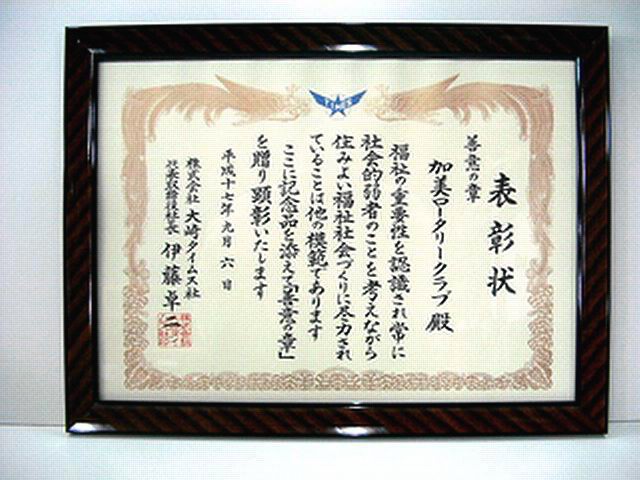 表彰状
善意の章
加美ロータリークラブ殿
福祉の重要性を認識され常に
社会的弱者のことを考えながら
住みよい福祉社会づくりに尽力され
ていることは他の模範であります
ここに記念品を添えて「善意の章」
を贈り顕彰いたします
平成十七年九月六日
株式会社大崎タイムス社
代表取締役社長 伊藤卓二